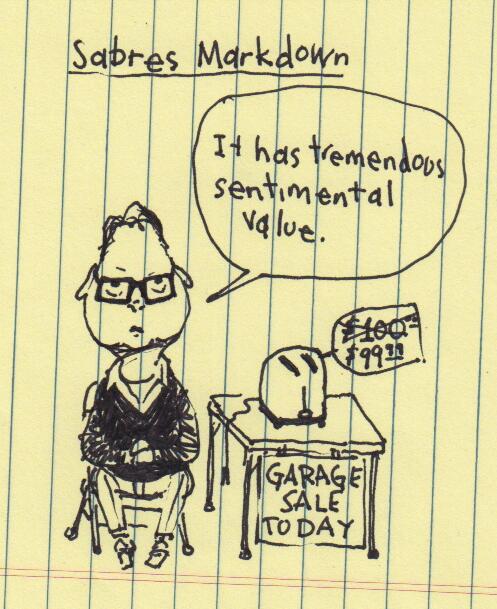 Sabres Markdown
It has tremendous
sentimental
value.
$100.00
$99.99
GARAGE
SALE
TODAY